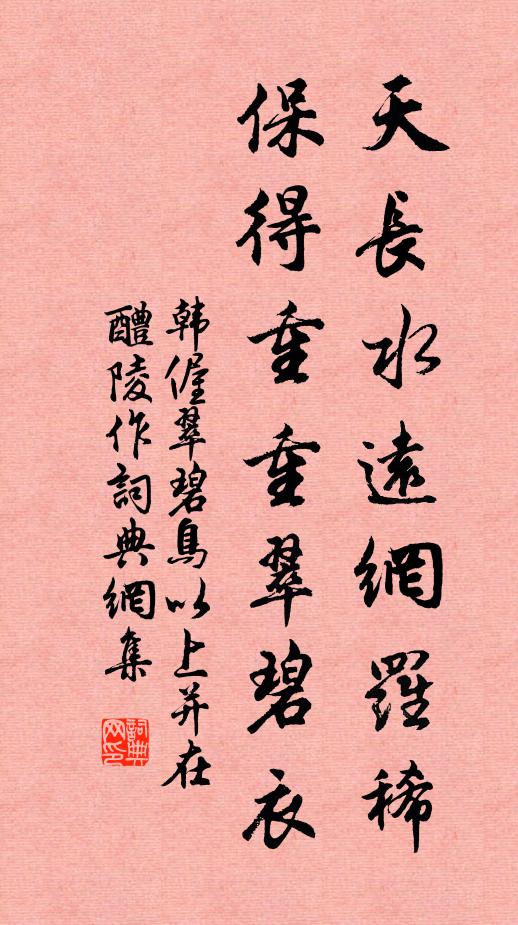 天長水遠網羅稀
保得重重翠碧衣
韩偓翠碧鳥以上并在
醴陵作詞典網集
詞典網印